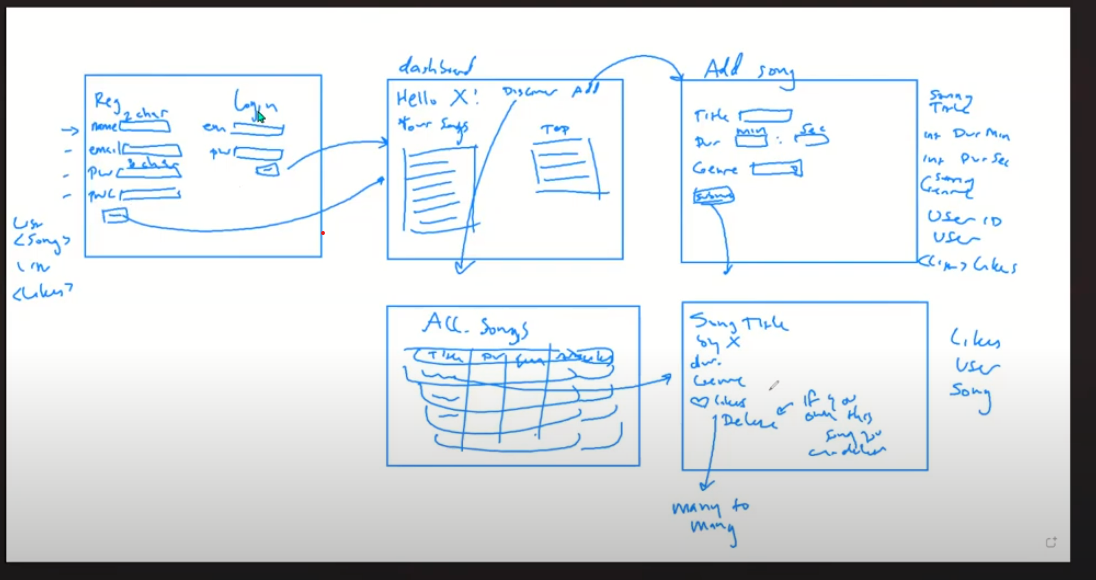 Reg
2 char
name
email
pw
8 char
pwc
Login
em
pw
User
<Song>
<Likes>
dashboard
Hello X!
Discover Add
Your Songs
Top
Add song
Title
Dur min : sec
Genre
submit
String
Title
int Dur Min
int Dur Sec
String
Genre
User ID
User
Likes
All Songs
Title
Song Title
by X
dur.
Genre
♡ Likes
Delete
If you
own this
song you
can delete
many to
many
Likes
User
Song